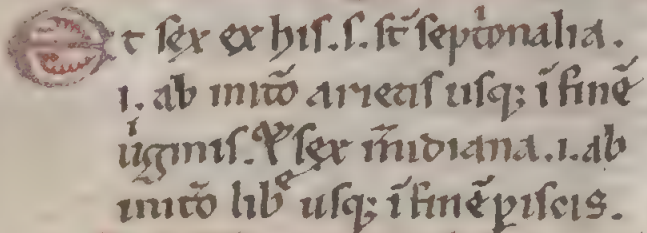 Et sex ex his.s. st̄ septͥonalia.
i. ab initō arietis usq; ī finē
uͥginis. sex m̄idiana.i.ab
initō libͤ usq; ī finē piscis.